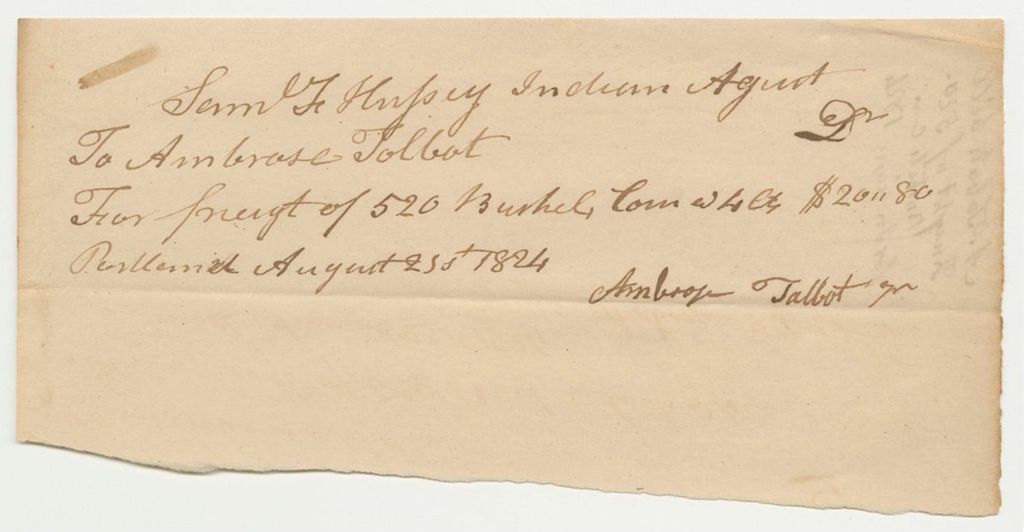 Saml F Hussey Indian Agent
Dr
To Ambrose Tolbot
For freigt of 520 Bushels Corn a 4 Cts $20"80
Portland August 21st 1824
Ambrose Talbot Jr